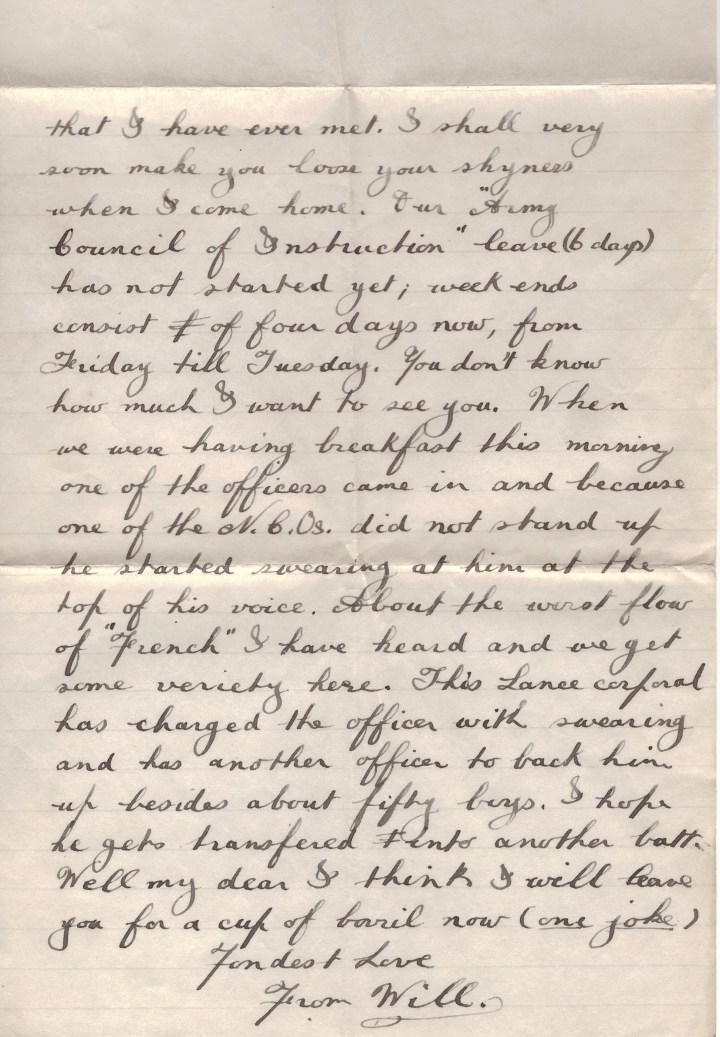 that I have ever met. I shall very
soon make you loose your shyness
when I come home. Our "Army
Council of Instruction" leave (6 days)
has not started yet; week ends
consist of four days now, from
Friday till Tuesday. You don't know
how much I want to see you. When
we were having breakfast this morning
one of the officers came in and because
one of the N.C.Os. did not stand up
he started swearing at him at the
top of his voice. About the worst flow
of "French" I have heard and we get
some veriety here. This Lance corporal
has charged the officer with swearing
and has another officer to back him
up besides about fifty boys. I hope
he gets transfered into another batt.
Well my dear I think I will leave
you for a cup of bovril now (one joke)
Fondest Love
From Will.